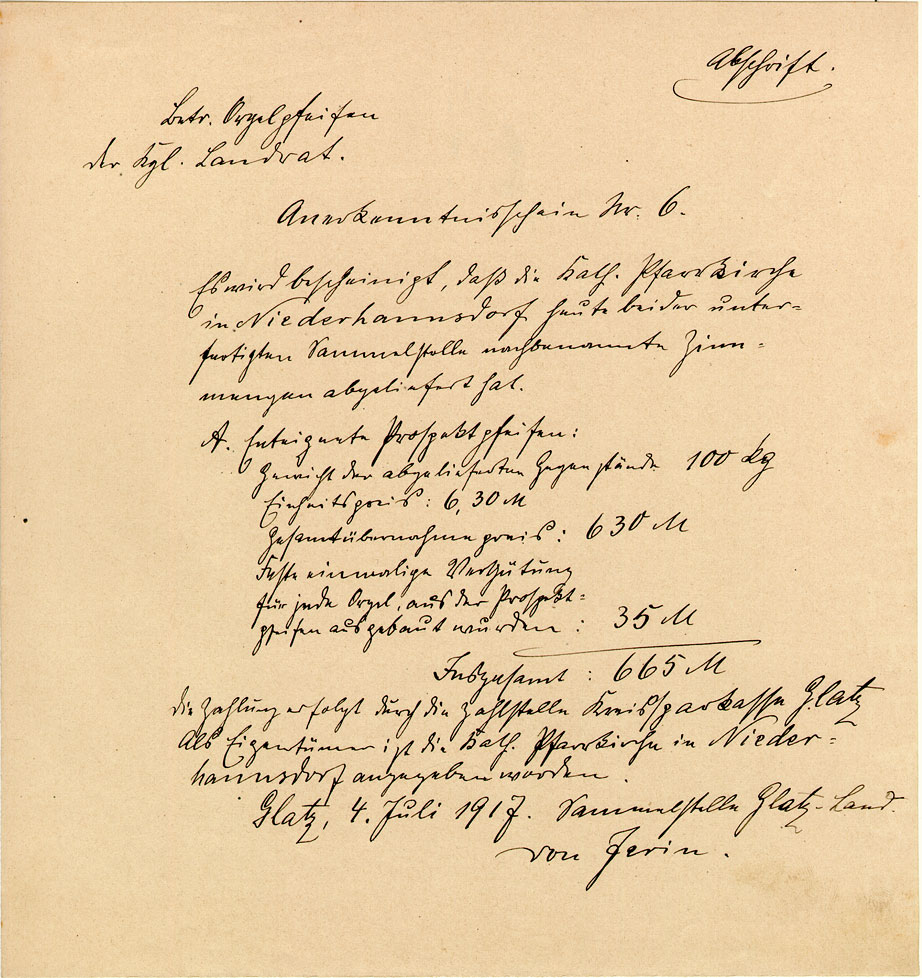 Abschrift.
Betr. Orgelpfeifen
der Kgl. Landrat.
Anerkenntnisschein Nr. 6.
Es wird bescheinigt, daß die Kath. Pfarrkirche
in Niederhannsdorf heute bei der unter-
fertigten Sammelstelle nachbenannte Zinn-
mengen abgeliefert hat.
A. Enteignete Prospektpfeifen:
Gewicht der abgelieferten Gegenstände 100 kg
Einheitspreis: 6,30 M
Gesamtübernahmepreis: 630 M
Feste einmalige Vergütung
für jede Orgel, aus der Prospekt-
pfeifen ausgebaut wurden: 35 M
Insgesamt: 665 M
die Zahlung erfolgt durch die Zahlstelle Kreissparkasse Glatz
Als Eigentümer ist die Kath. Pfarrkirche in Nieder-
hannsdorf angegeben worden.
Glatz, 4. Juli 1917. Sammelstelle Glatz-Land.
von Jerin.